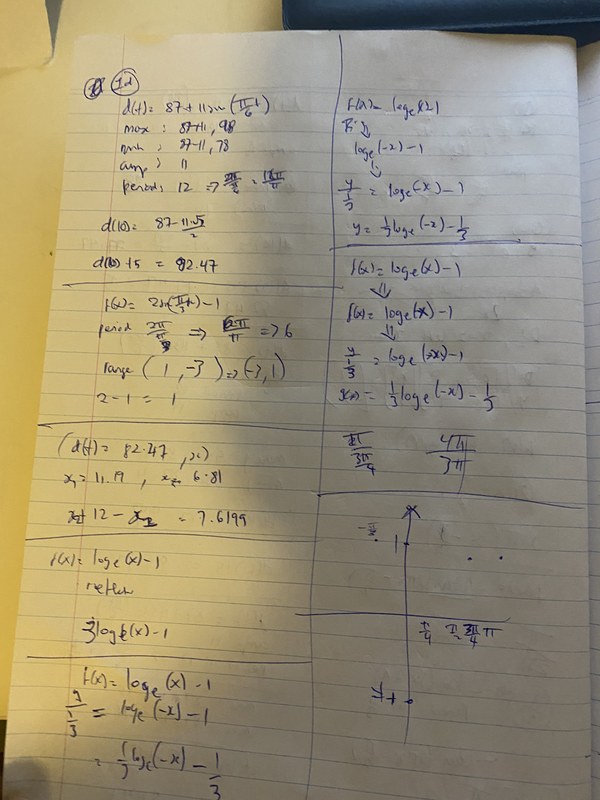 1d
d(t) = 87 + 11 sin (π/6 t)
max : 87+11, 98
min : 87-11, 78
amp : 11
period: 12 =>
d(10) = 87 - 11√3/2
d(10) + 5 = 82.47
f(x) = 2 sin(π/3 x) - 1
period => 6π/π => 6
range (1, -3) => (-3, 1)
2 - 1 = 1
(d(t) = 82.47, x)
x₁ = 11.19 , x₂ = 6.81
12 - = 7.6199
f(x) = logₑ(x) - 1
reflect
3 logₑ(x) - 1
f(x) = logₑ(x) - 1
y/(1/3) = logₑ(-x) - 1
= 1/3 logₑ(-x) - 1/3
f(x) = logₑ(x)
logₑ(-x) - 1
y/(1/3) = logₑ(-x) - 1
y = 1/3 logₑ(-x) - 1/3
f(x) = logₑ(x) - 1
f(x) = logₑ(-x) - 1
y/(1/3) = logₑ(-x) - 1
= 1/3 logₑ(-x) - 1/3
π/(3π/4) 4π/3π
1
π/4 π/2 3π/4 π